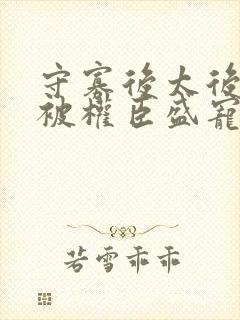 守寡後太後
被權臣盛寵
若雪乖乖